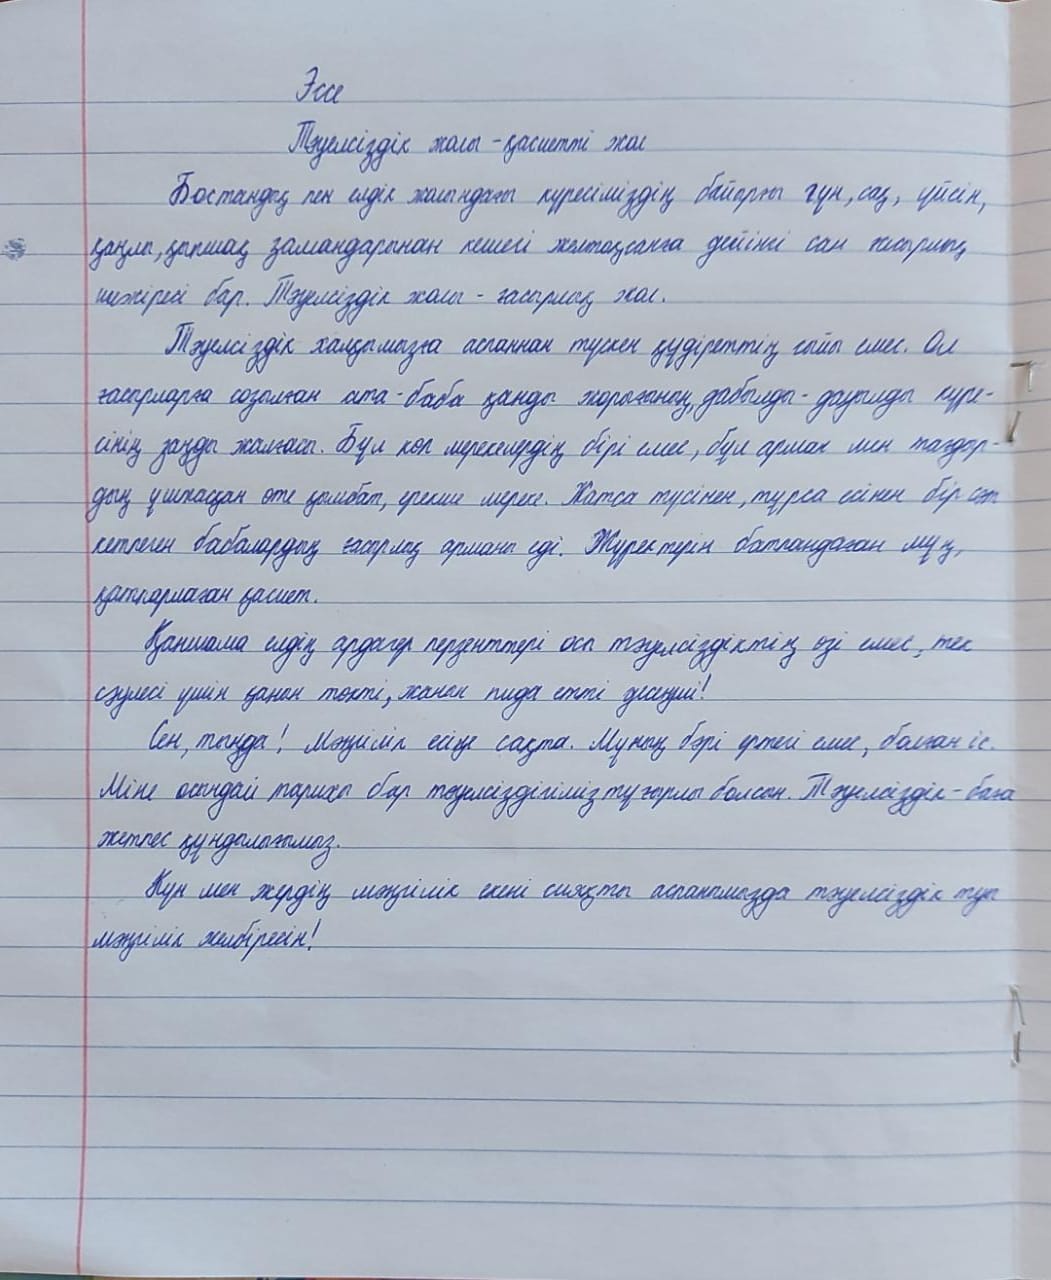 Эссе
Тәуелсіздік жолы - қасиетті жол
Бостандық пен елдік жолындағы күресіміздің байырғы ғұн, сақ, үйсін,
қаңлы, қыпшақ замандарынан кешегі желтоқсанға дейінгі сан ғасырлық
шежіресі бар. Тәуелсіздік жолы - ғасырлық жол.
Тәуелсіздік халқымызға аспаннан түскен құдіреттің сыйы емес. Ол
ғасырларға созылған ата-баба қанды жорығының, дабылды-дауылды күре-
сінің заңды жалғасы. Бұл көп мерекелердің бірі емес, бұл арман мен тағдыр-
дың ұштасқан өте қымбат, ерекше мереке. Жатса түсінен, тұрса есінен бір сәт
кетпеген бабалардың ғасырлық арманы еді. Жүректерін батпандаған мұң,
қатпарлаған қасиет.
Қаншама елдің ардагер перзенттері осы тәуелсіздіктің өзі емес, тек
сәулесі үшін қанын төкті, жанын пида етті десеңші!
Сен, тыңда! Мәңгілік есіңе сақта. Мұның бәрі ертегі емес, болған іс.
Міне осындай тарихы бар тәуелсіздігіміз тұғырлы болсын. Тәуелсіздік - баға
жетпес құндылығымыз.
Күн мен жердің мәңгілік екені сияқты аспанымызда тәуелсіздік туы
мәңгілік желбіресін!